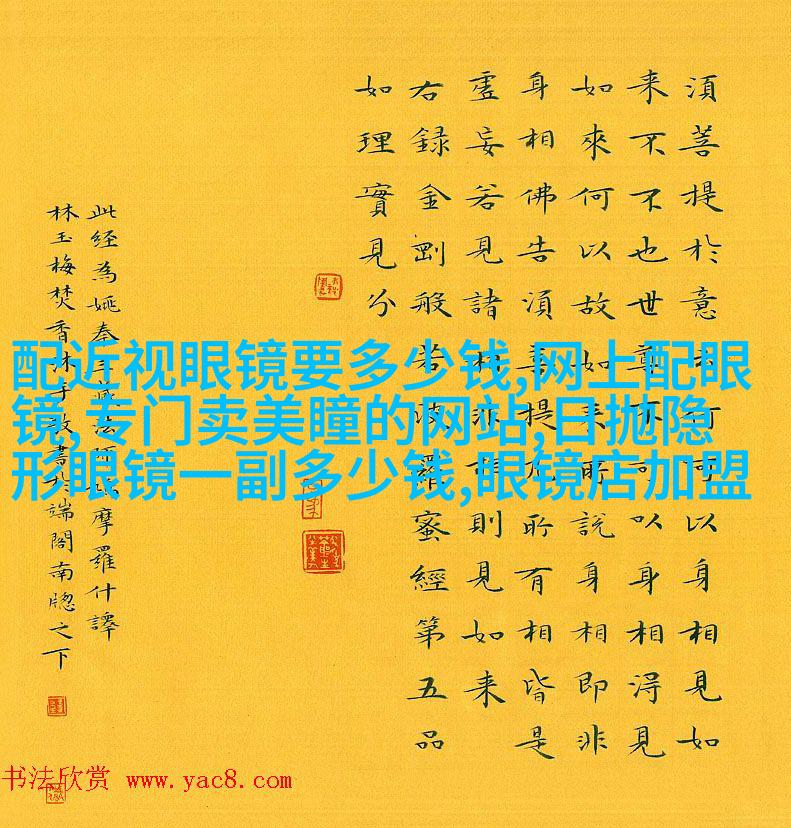 湏菩提於意云何可以身相見如
来不不也世尊不可以身相淂見
如來何以故如来所説身相即非
身相佛告湏菩提凡所有相皆是
虛妄若見諸相非相則見如来
右録金剛般若波羅蜜經第五品
如理實見分
此经為姚奉三藏法師鳩摩羅什譯
林玉梅焚香沐手敬書於端閣南牕之下
配近视眼镜要多少钱,网上配眼
镜,专门卖美瞳的网站,日抛隐
形眼镜一副多少钱,眼镜店加盟
书法欣赏 www.yac8.com